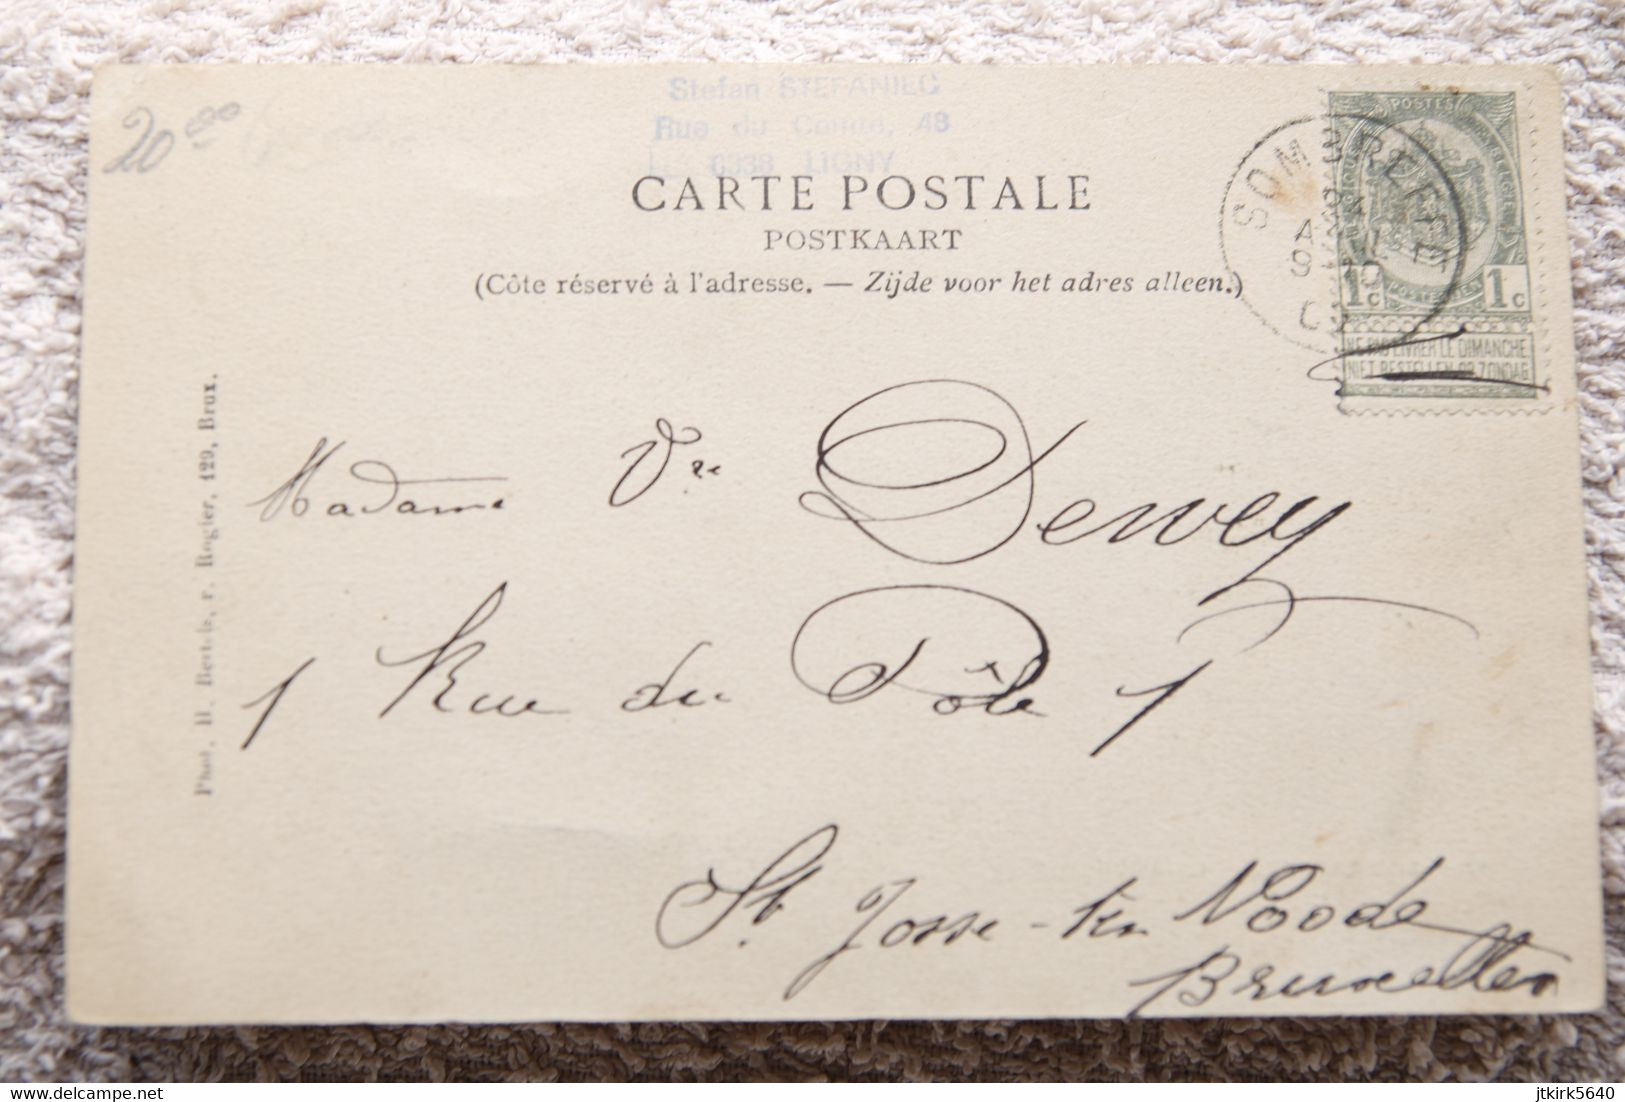 20.00
Stefan STEFANIEC
Rue du Comte, 48
LIGNY
CARTE POSTALE
POSTKAART
(Côte réservé à l'adresse. — Zijde voor het adres alleen.)
SOMBREFFE
POSTES
1c 1c
NE PAS LIVRER LE DIMANCHE
NIET BESTELLEN OP ZONDAG
Phot. H. Bertels, r. Rogier, 129, Brux.
Madame Vve Dewey
1 Rue du Pôle 1
St Josse-ten Noode
Bruxelles
delcampe.net
jtkirk5640